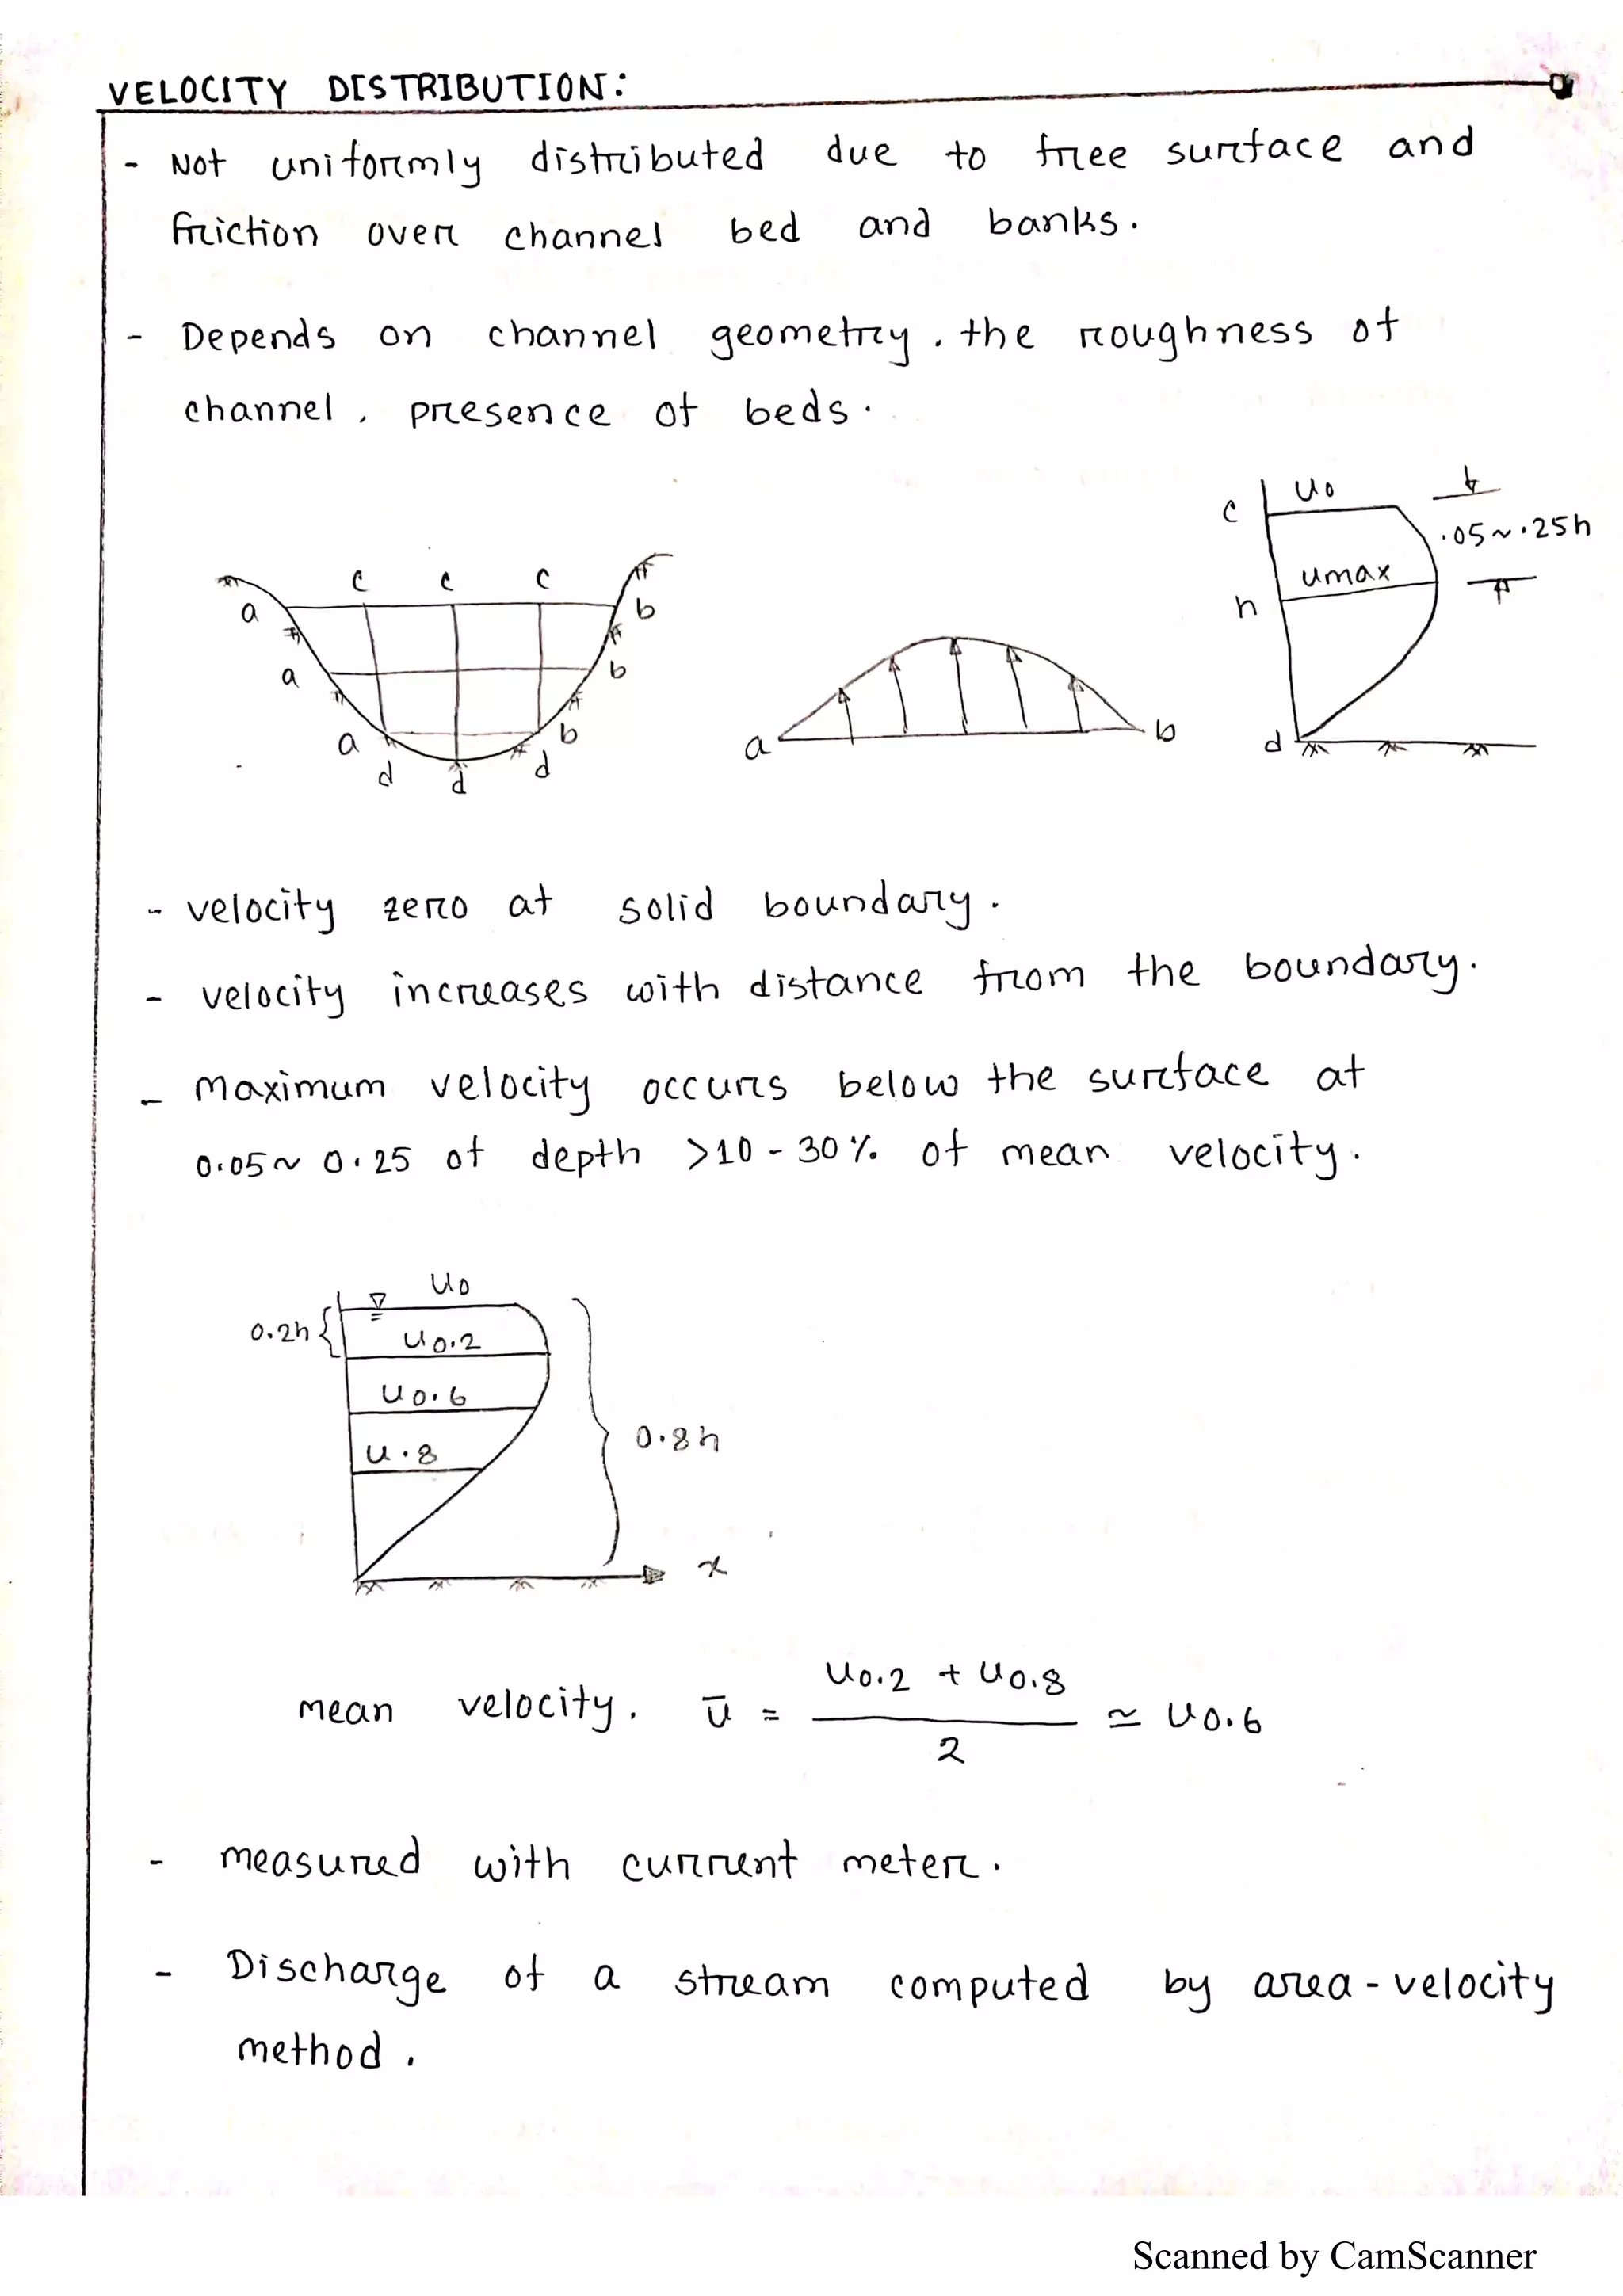 VELOCITY DISTRIBUTION:
- Not uniformly distributed due to free surface and
friction over channel bed and banks.
- Depends on channel geometry, the roughness of
channel, presence of beds.
c u0
.05~.25h
umax
h
d
c c c
a b
a b
a b
d d d
a b
- velocity zero at solid boundary.
- velocity increases with distance from the boundary.
- Maximum velocity occurs below the surface at
0.05~0.25 of depth >10-30% of mean velocity.
u0
0.2h u0.2
u0.6
u.8 0.8h
x
mean velocity, ū = (u0.2 + u0.8) / 2 ≃ u0.6
- measured with current meter.
- Discharge of a stream computed by area-velocity
method.
Scanned by CamScanner